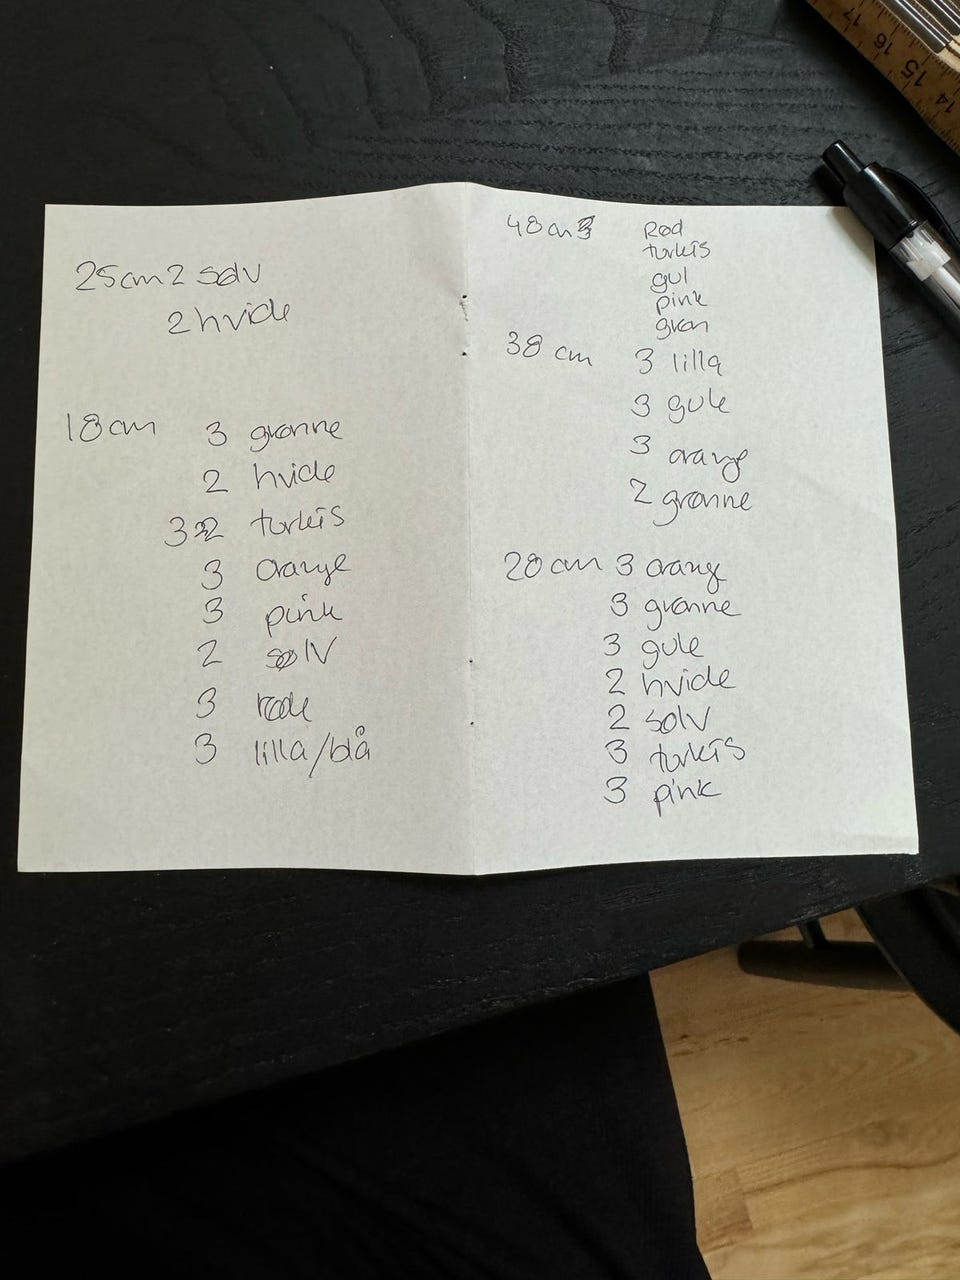 25cm 2 sølv
2 hvide
18cm 3 grønne
2 hvide
3 turkis
3 orange
3 pink
2 sølv
3 røde
3 lilla/blå
48cm 3 Rød
turkis
gul
pink
grøn
38 cm 3 lilla
3 gule
3 orange
2 grønne
28cm 3 orange
3 grønne
3 gule
2 hvide
2 sølv
3 turkis
3 pink
17
16
15
14